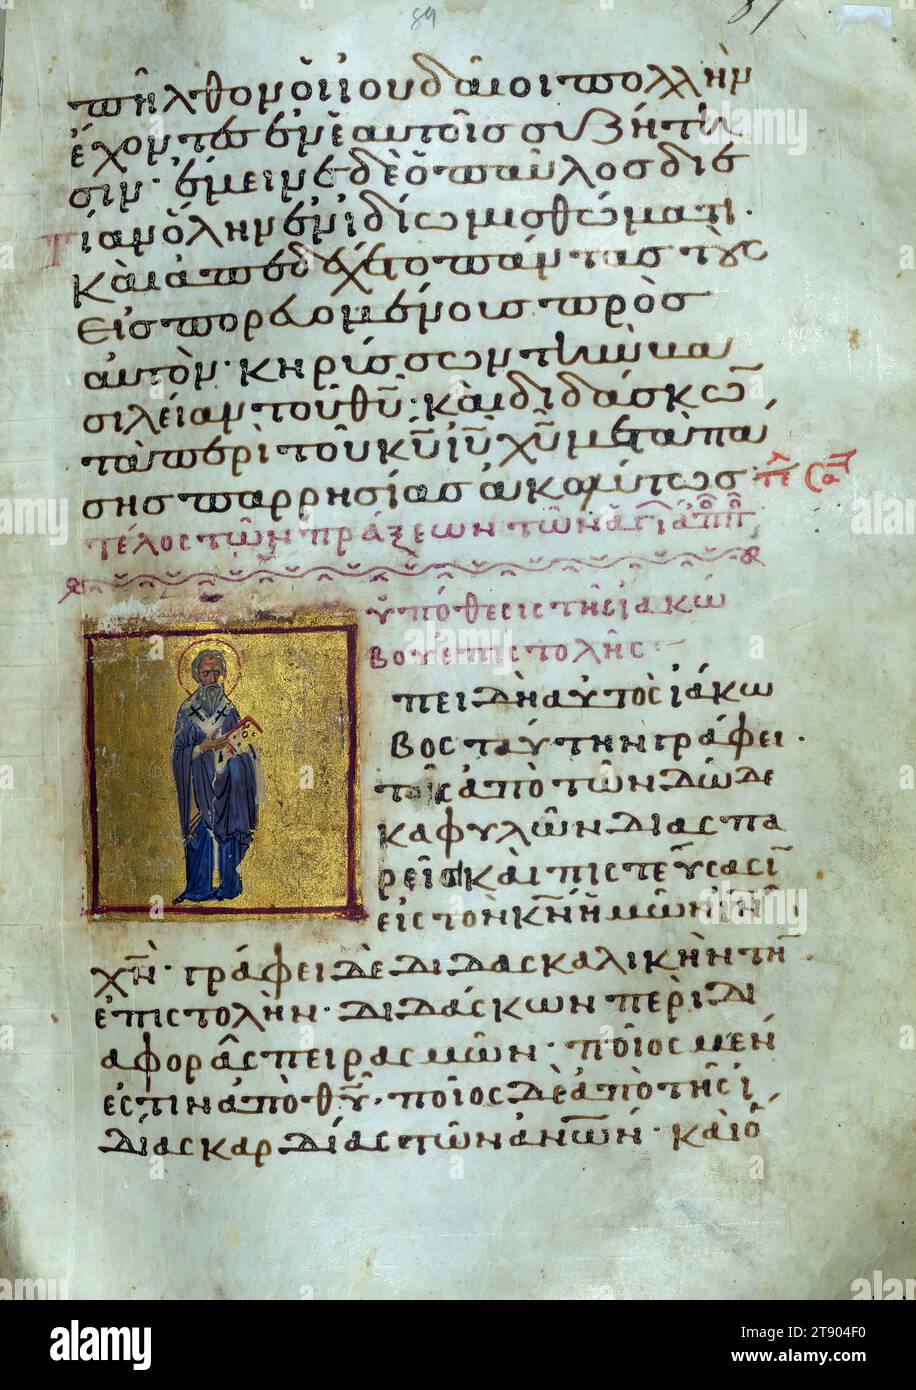 89
πῆλθον ὁι ἰουδᾶιοι πολλὴν
ἔχοντες ἐν ἑαυτοῖς συζήτη
σιν· ἔμεινε δὲ ὁ παῦλος διε
τίαν ὅλην ἐν ἰδίω μισθώματι·
καὶ ἀπεδέχετο πάντας τοὺς
εἰσπορευομένους πρὸς
αὐτὸν· κηρύσσων τὴν βα
σιλείαν τοῦ θῦ· καὶ διδάσκων
τὰ περὶ τοῦ κῦ ἰῦ χῦ μετὰ πά
σης παρρησίας ἀκολύτως
τέλος τῶν πράξεων τῶν ἁγί ἀπο
ὑπόθεσις τῆς ἰακώ
βου ἐπιστολῆς
πειδὴ αὐτὸς ἰάκω
βος ταύτην γράφει·
τοῖς ἀπὸ τῶν δώδε
κα φυλῶν διασπα
ρεῖσι καὶ πιστεύσασιν
εἰς τὸν κῦν ἡμῶν ἰῦν
χῦν· γράφει δὲ διδασκαλικὴν τὴν
ἐπιστολὴν· διδάσκων περὶ δι
αφορᾶς πειρασμῶν· ποῖος μέν
ἐστιν ἀπὸ θῦ· ποῖος δὲ ἀπὸ τῆς ἰ
δίας καρδίας τῶν ἀνῶν· καὶ ὅ
alamy
alamy
Image ID: 2T904F0
www.alamy.com